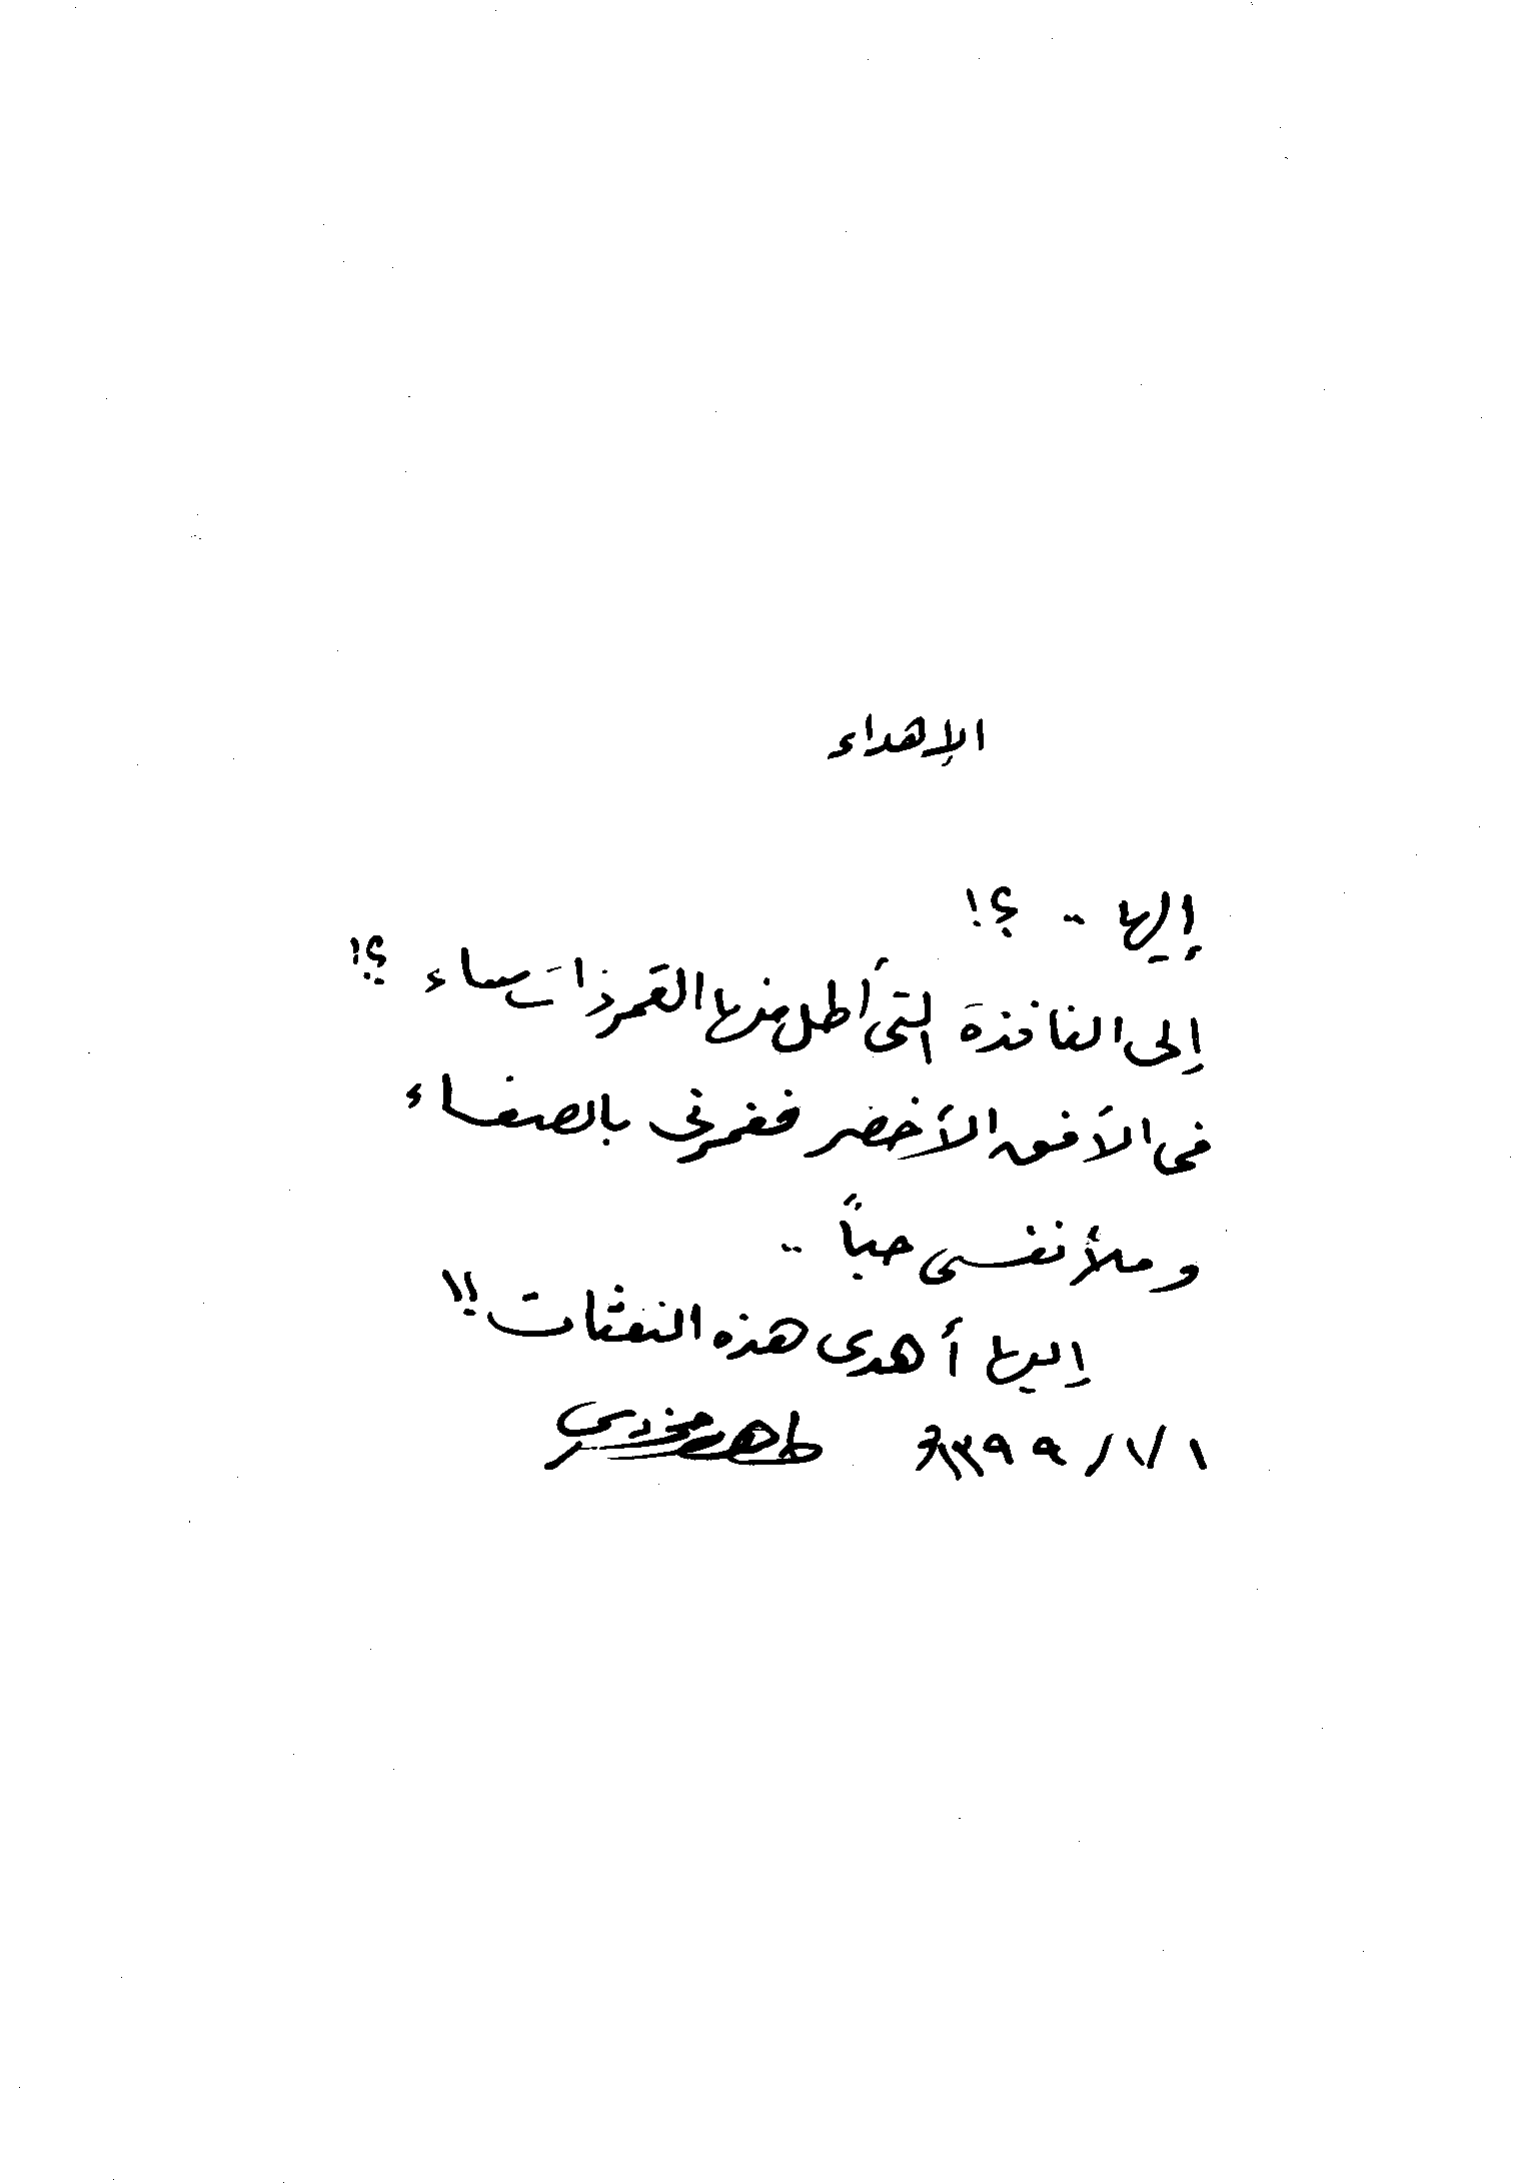 الإهداء
إليها .. ؟!
إلى النافذة التى أطل منها القمر ذات مساء ؟!
فى الأفق الأخضر فغمرنى بالصفاء
وملأ نفسى حباً ..
إليها أهدى هذه النفثات !!
١/٧/١٣٩٩هـ طاهر زمخشرى